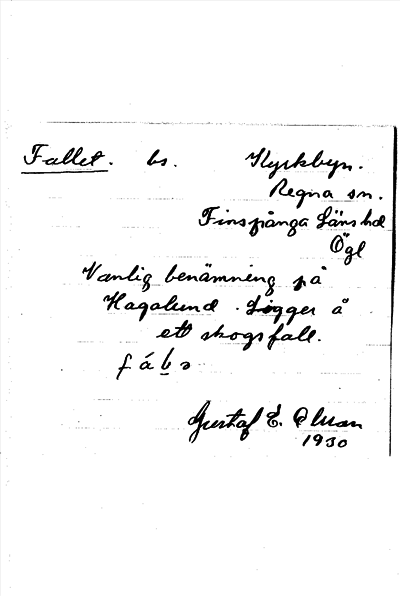 Fallet. bs. Kyrkbyn.
Regna sn.
Finspånga Läns hd
Ögl
Vanlig benämning på
Hagalund. Ligger å
ett skogsfall.
Gustaf E. Olsson
1930